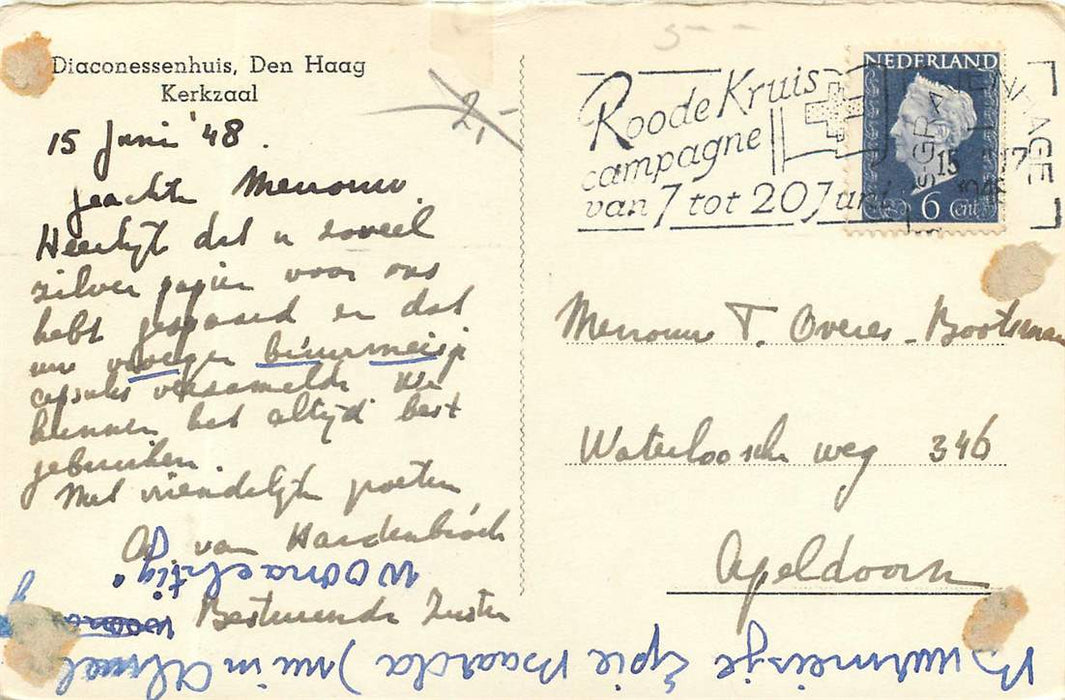 Diaconessenhuis, Den Haag
Kerkzaal
15 Juni '48.
geachte Mevrouw.
Heerlijk dat u zoveel
zilver papier voor ons
hebt gespaard en dat
uw vroeger buurmeisje
capsules verzamelde. We
kunnen het altijd best
gebruiken.
Met vriendelijke groeten
van Hardenbroek
Besturende Zuster
2,-
5 - -
Roode Kruis
campagne
van 7 tot 20 Juni
'S-GRAVENHAGE
15 17
1948
NEDERLAND
6 Cent
Mevrouw T. Overes-Bootsman
Waterloosche weg 346
Apeldoorn
Buurmeisje Epie Baarda) nu in Almelo
woonachtig